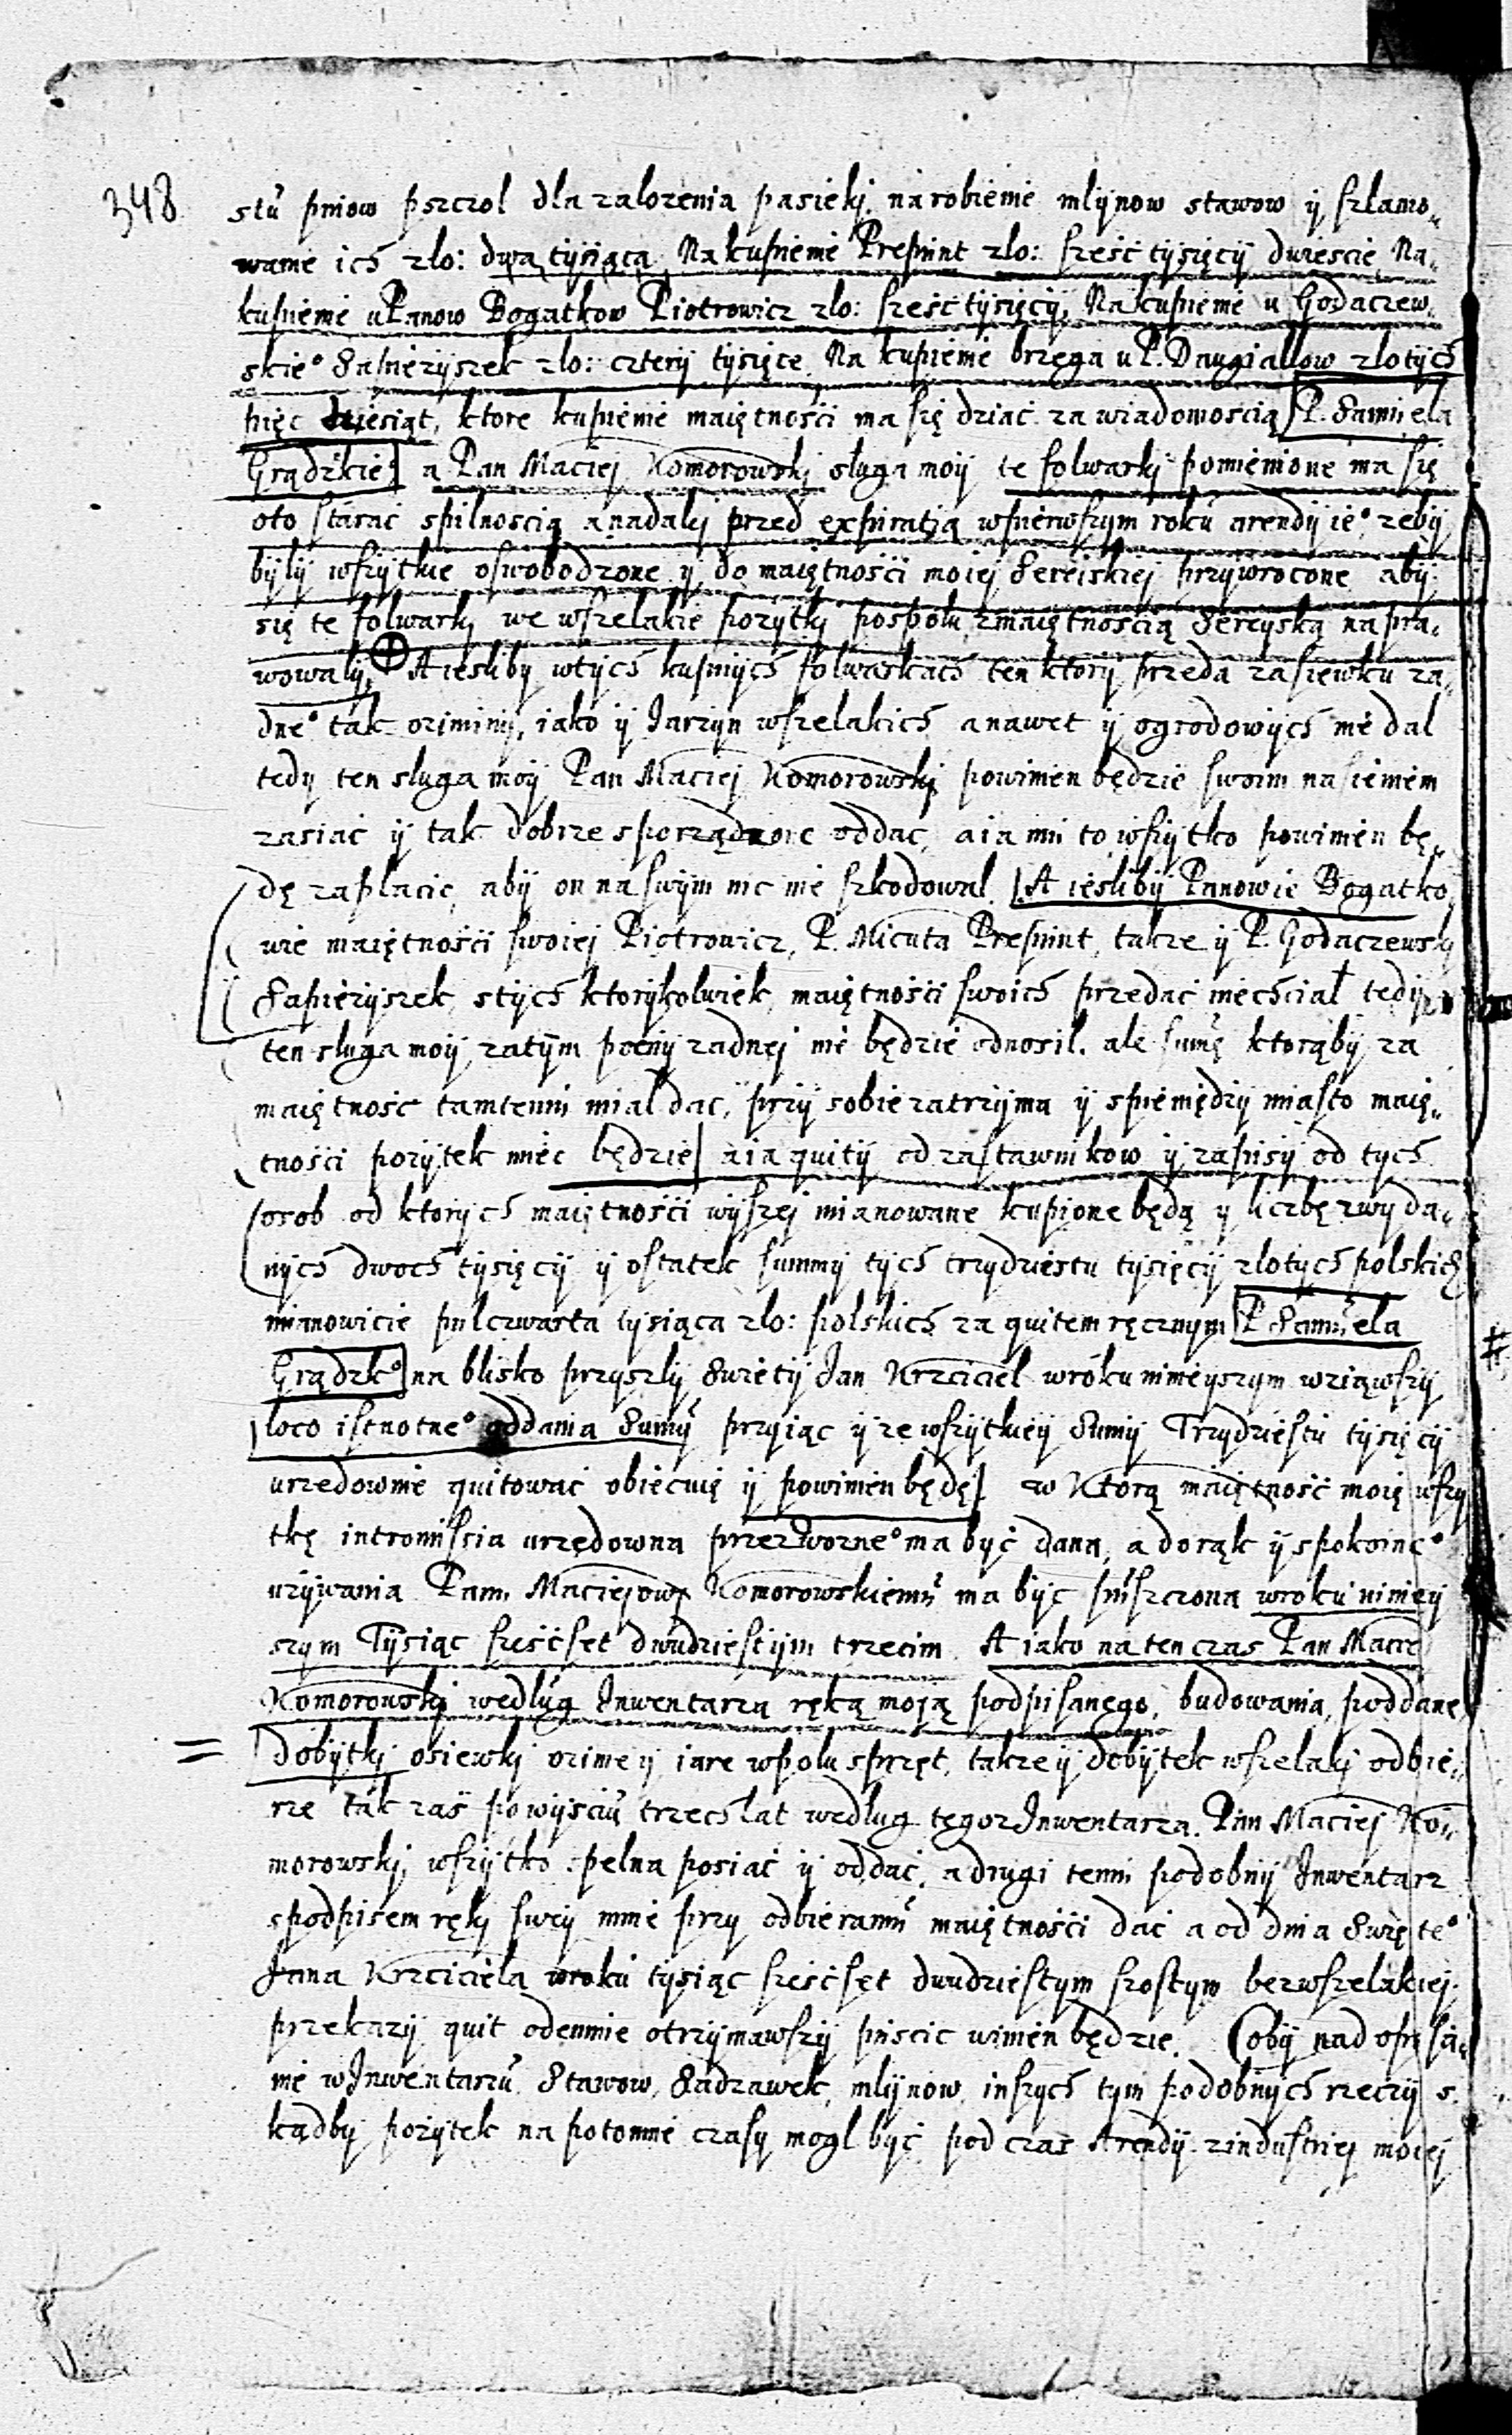 348
stu pniow pszczol dla zalozenia pasieki, na robienie mlynow stawow y szlamo-
wanie ich zlo: dwa tysiąca, Na kupienie Prepunt zlo: sześć tysięcy dwieście, Na-
kupienie u Panow Bogatkow Piotrowicz zlo: sześć tysięcy, Na kupienie u Godaczew-
skie° Sapieżyszek zlo: cztery tysięce. Na kupienie brzega u P. Daugiallow zlotych
pięc dziesiąt, ktore kupienie maiętności ma się dziać za wiadomością P. Samuela
Grądzkie° a Pan Maciej Komorowski sluga moy te folwarki pomienione ma się
oto starać spilnoscią a nadaley przed expiratią wpierwszym roku arendy ie°, zeby
byly wszytkie oswobodzone y do maiętności moiej Sereiskiej przywrocone aby
się te folwarki we wszelakie pozytki pospolu zmaiętnością Sereyską napra-
wowaly, A iesliby wtych kupnych folwarkach ten ktory przeda zasiewku za-
dne° tak oziminy, iako y Jarzyn wszelakich a nawet y ogrodowych nie dal
tedy ten sluga moy Pan Maciej Komorowski powinien będzie swoim nasieniem
zasiać y tak dobrze sporządzone oddac, a ia mu to wszytko powinien bę-
dę zaplacic, aby on na swym nic nie szkodowal. A iesliby Panowie Bogatko
wie maiętności swoiej Piotrowicz, P. Micuta Prepunt, takze y P. Godaczewsky
Sapieżyszek, stych ktorykolwiek maiętności swoich przedać niechciał tedy
ten sluga moy zatym poeny zadnej nie będzie odnosil. ale sumę ktorąby za
maiętnosc tamtemu mial dac, przy sobie zatrzyma y spieniędzy miasto maię-
tności pozytek miec będzie a ia quity od zastawnikow y zapisy od tych
osob od ktorych maiętności wyszej mianowane kupione będą y liczbę zwyda-
nych dwoch tysięcy y ostatek summy tych trzydziestu tysięcy zlotych polskich
mianowicie pulczwarta tysiąca zlo: polskich za quitem ręcznym P. Samuela
Grądzk° na blisko przyszly Swięty Jan Krzciciel wroku ninieyszym wziąwszy
loco istnotne° oddania Sumy przyiąc y ze wszytkiey Sumy Trzydziestu tysięcy
urzedownie quitować obiecuię y powinien będę w Ktorą maiętność moię wszy
tkę intromissia urzędowna przez Wozne° ma być dana, a dorąk y spokoine°
uzywania Panu Maciejowi Komorowskiemu ma być puszczona wroku niniey
szym Tysiąc sześćset dwudziestym trzecim A iako na ten czas Pan Macie
Komorowski wedlug Inwentarza ręką moją podpisanego, budowania, poddane
= Dobytki osiewki ozime y iare wpolu sprzęt, takze y dobytek wszelaki odbie-
rze tak zas powysciu trzech lat wedlug tegoz Inwentarza. Pan Maciej Ko-
morowski, wszytko spelna posiać y oddać, a drugi temu podobny Inwentarz
spodpisem ręki swey mnie przy odbieraniu maiętności dać a od dnia Swięte°
Jana Krzciciela wroku tysiąc sześćset dwudziestym szostym bezwszelakiej
przekazy quit odemnie otrzymawszy puscic winien będzie. Coby nad opisa-
nie w Inwentarzu Stawow, Sadzawek, mlynow, inszych tym podobnych rzeczy s-
kądby pozytek na potomne czasy mogl być pod czas Arendy zindustriej moiej